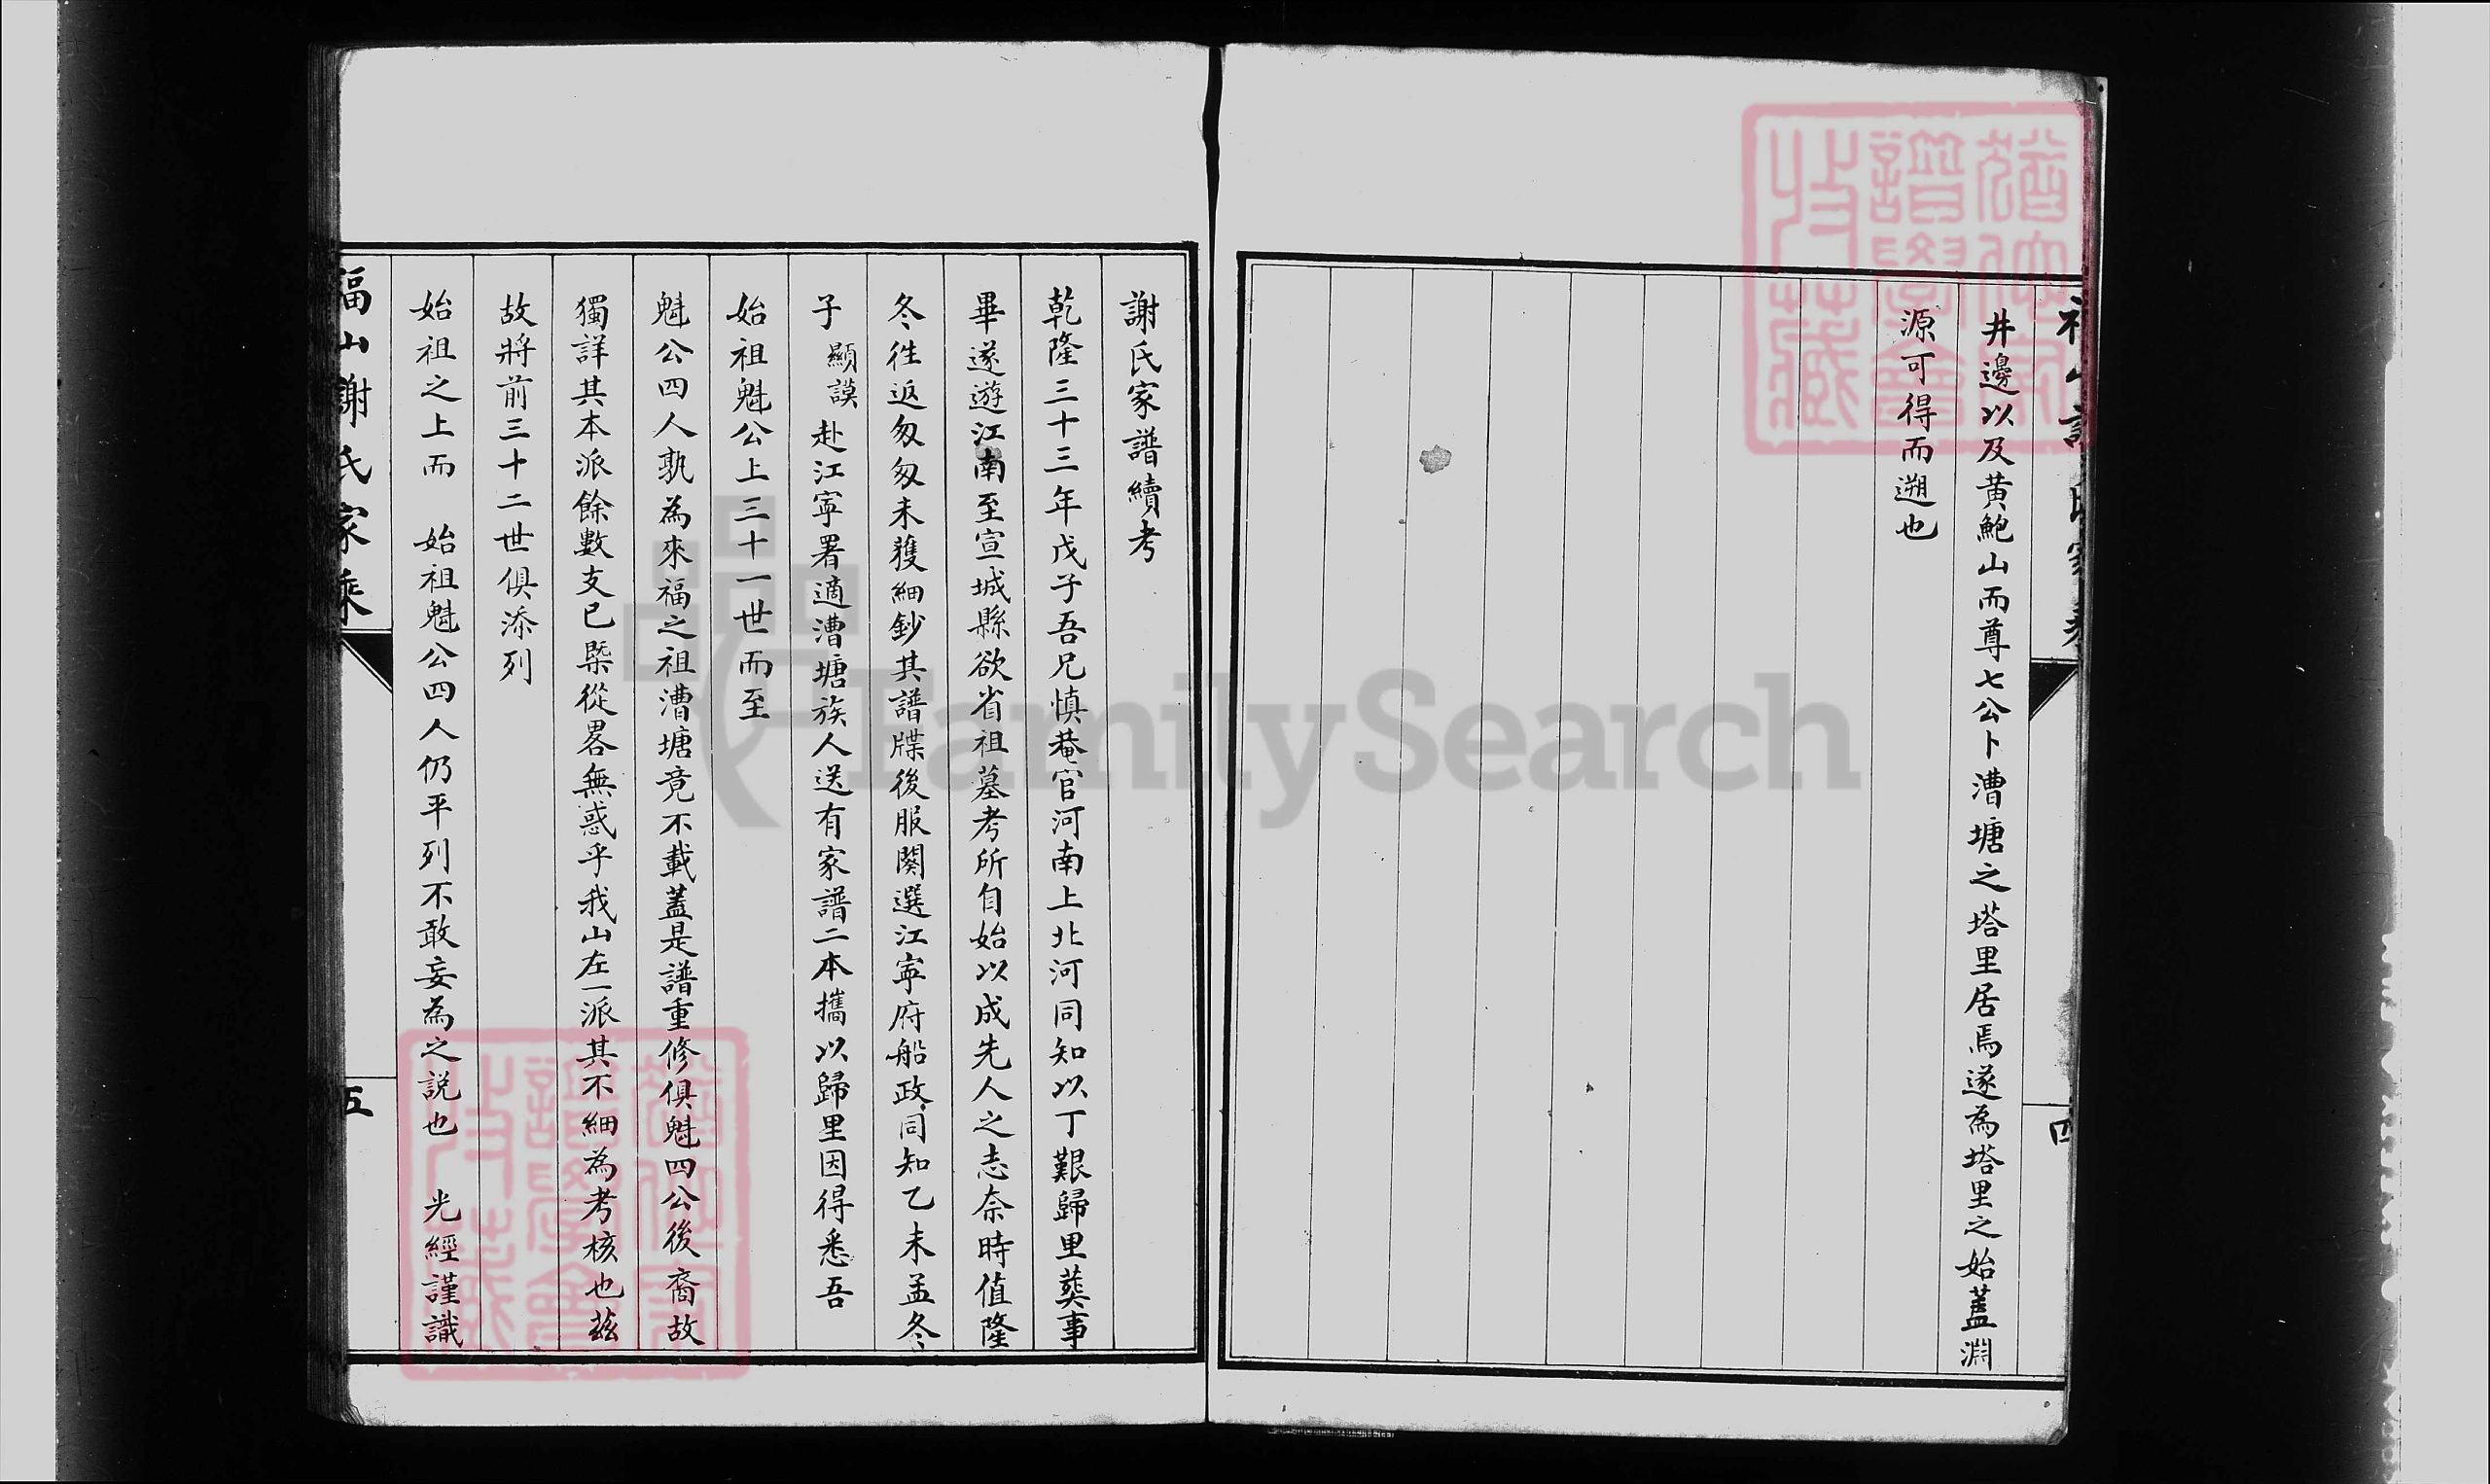 井邊以及黃鮑山而尊七公卜漕塘之塔里居焉遂為塔里之始蓋淵
源可得而遡也
四
謝氏家譜續考
乾隆三十三年戊子吾兄慎菴官河南上北河同知以丁艱歸里葬事
畢遂遊江南至宣城縣欲省祖墓考所自始以成先人之志奈時值隆
冬徃返匆匆未獲細鈔其譜牒後服闋選江寧府船政同知乙未孟冬
子顯謨赴江寧署適漕塘族人送有家譜二本攜以歸里因得悉吾
始祖魁公上三十一世而至
魁公四人孰為來福之祖漕塘竟不載蓋是譜重修俱魁四公後裔故
獨詳其本派餘數支已槩從畧無惑乎我山左一派其不細為考核也茲
故將前三十二世俱添列
始祖之上而　始祖魁公四人仍平列不敢妄為之説也　光經謹識
福山謝氏家乘
五
FamilySearch